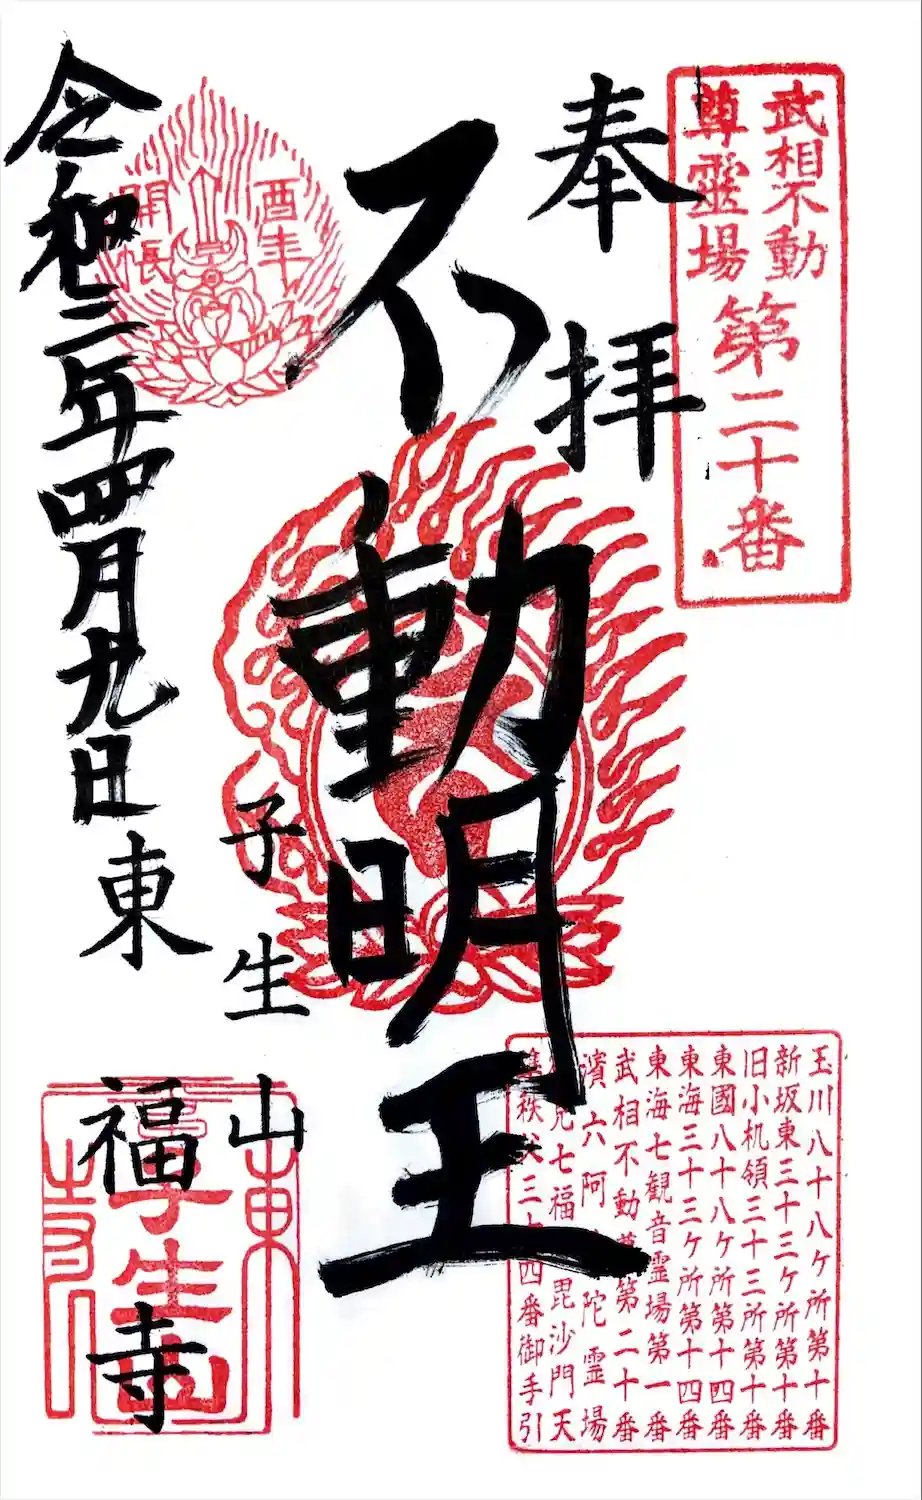 武相不動
尊靈場
第二十番
奉拝
不動明王
酉年
開帳
令和三年四月九日
子生山
東福寺
玉川八十八ケ所第十番
新坂東三十三ケ所第十番
旧小机領三十三所第十番
東國八十八ケ所第十四番
東海三十三ケ所第十四番
東海七観音霊場第一番
武相不動尊第二十番
濱六阿陀霊場
見七福毘沙門天
秩父三十四番御手引
東
子生山
寺